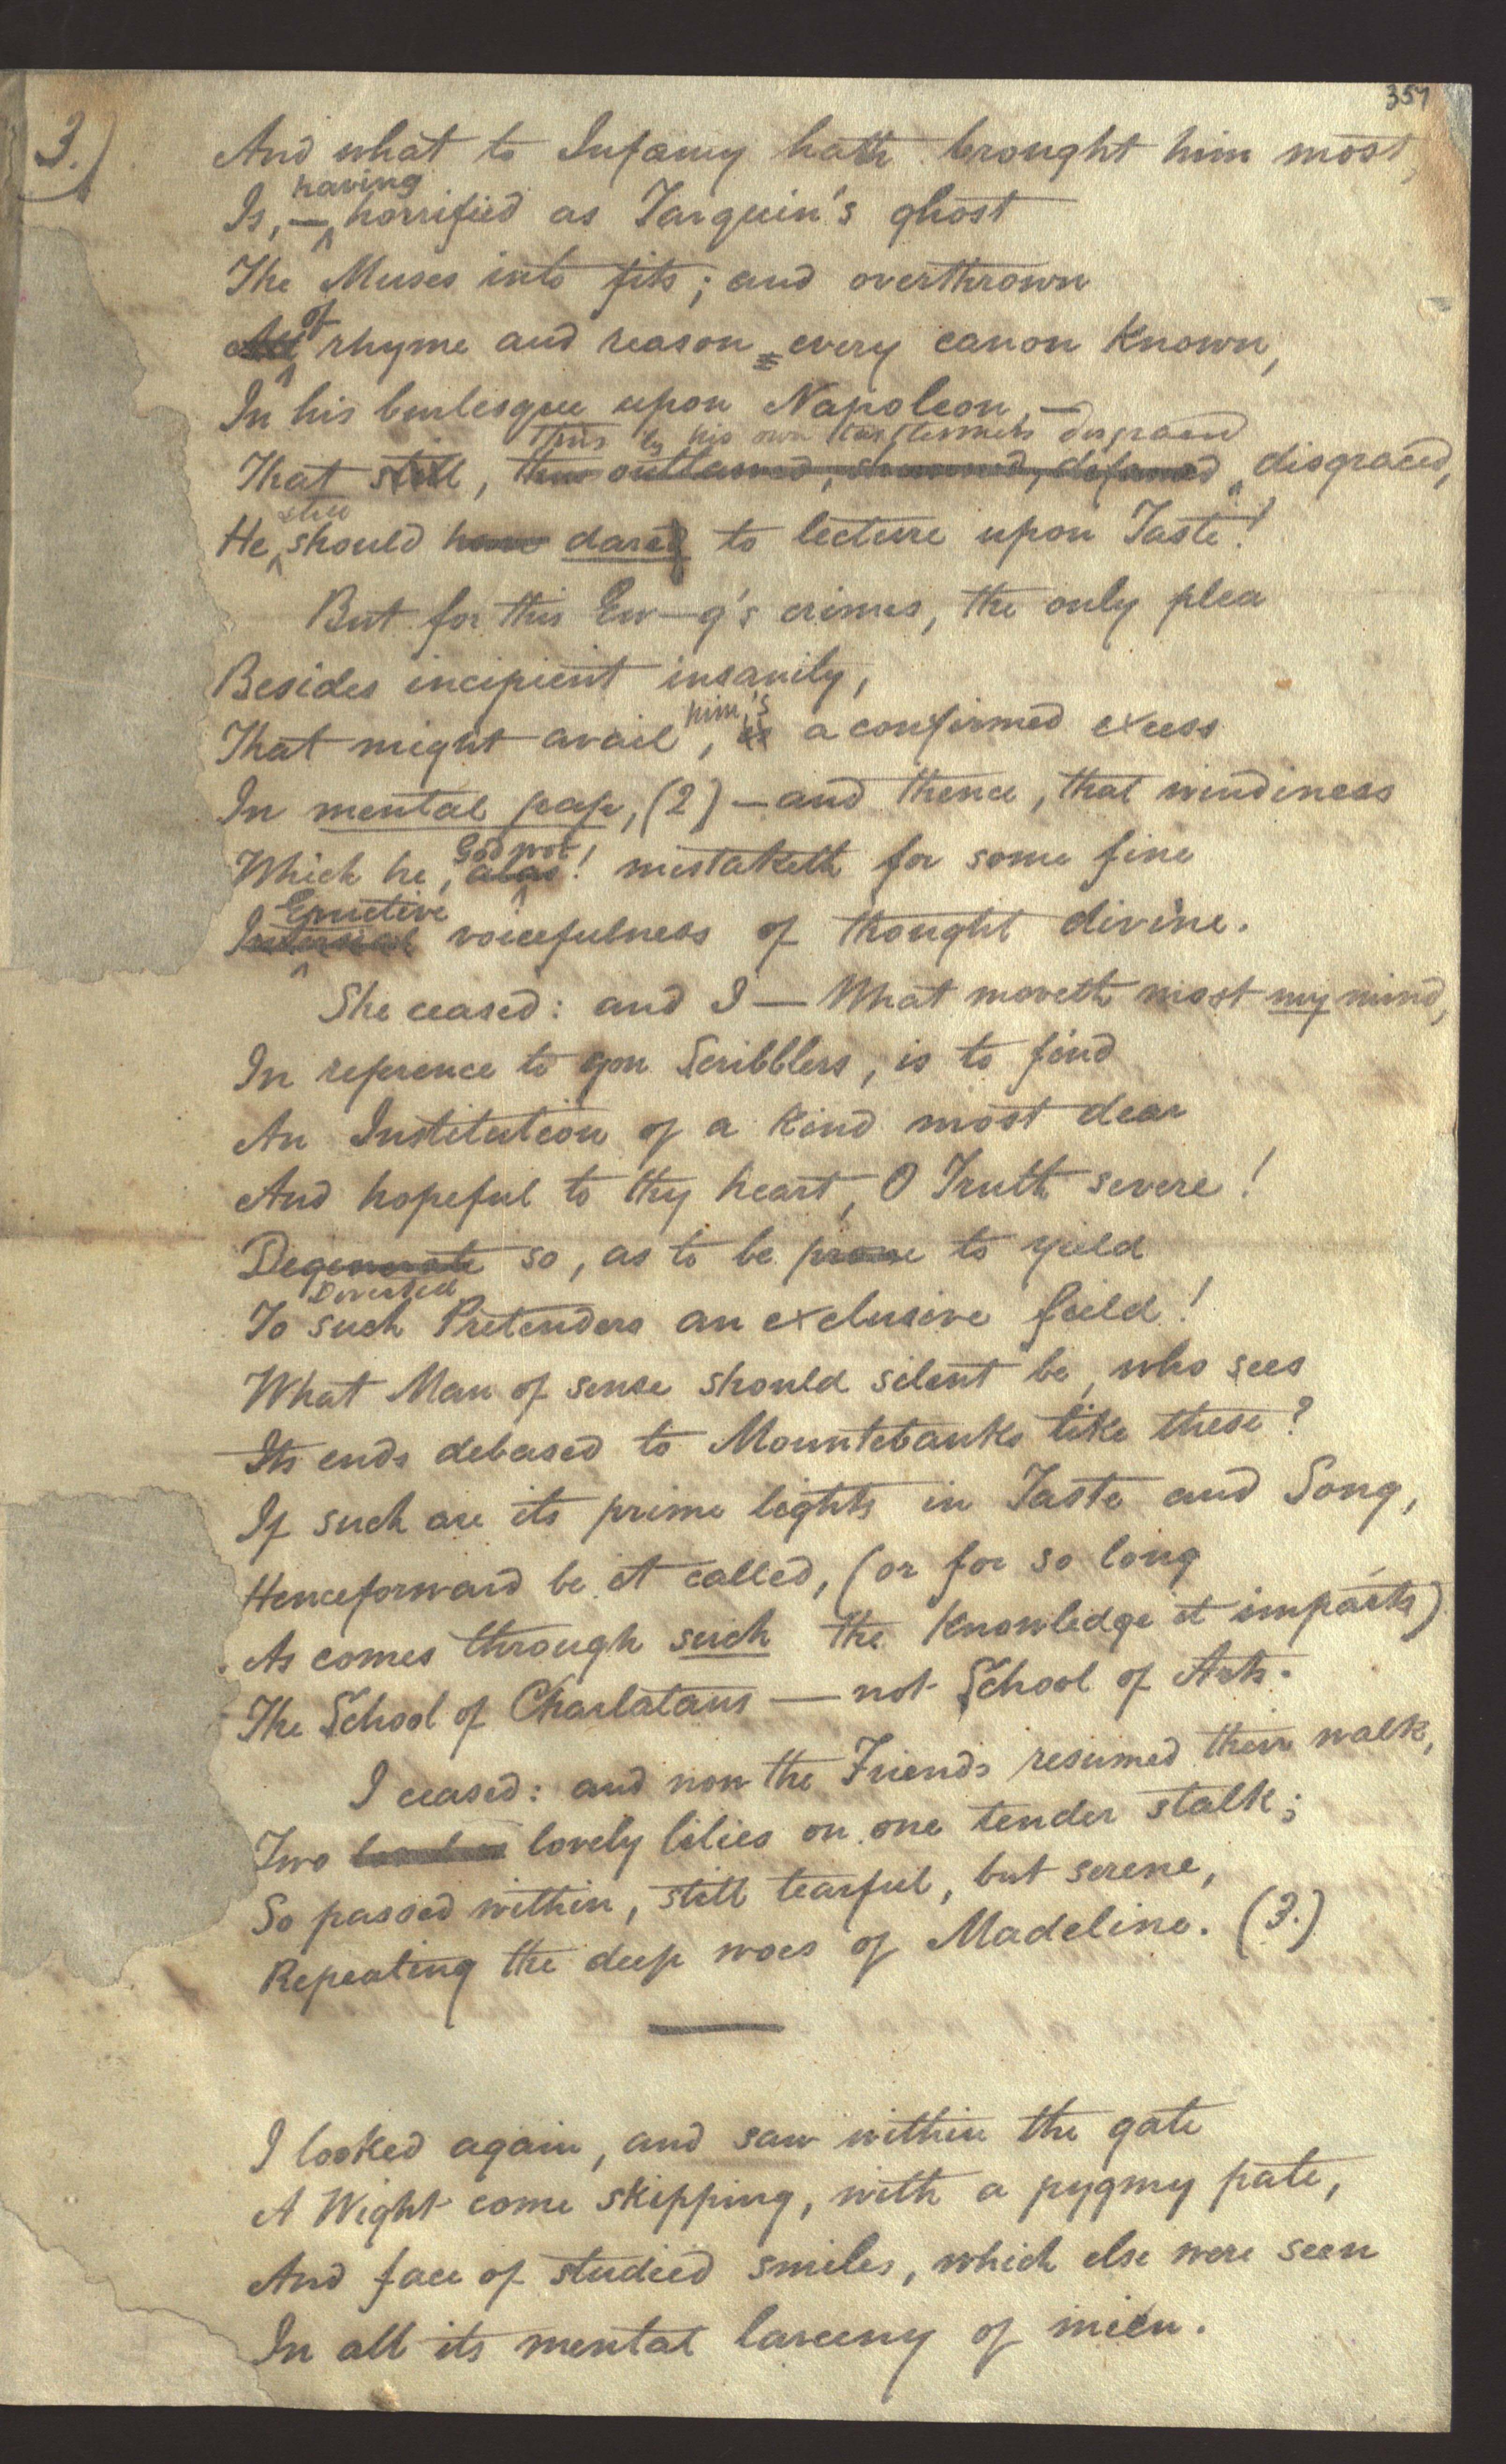 357
3.)
And what to Infamy hath brought him most,
having
Is, — horrified as Tarquin's ghost
The Muses into fits; and overthrown
of
All rhyme and reason every canon known,
In his burlesque upon Napoleon, —
Thus by his own disgraced
That still, thus outlawed, defamed, disgraced,
still
He should have dared to lecture upon Taste!
But for this Ew—g's crimes, the only plea
Besides incipient insanity,
him,'s
That might avail, is a confirmed excess
In mental pap, (2) — and thence, that windiness
God wot!
Which he, alas! mistaketh for some fine
Eructive
voicefulness of thought divine.
She ceased: and I — What moveth most my mind,
In reference to yon Scribblers, is to find
An Institution of a kind most dear
And hopeful to thy heart, O Truth severe!
Degenerate so, as to be prone to yield
Diverted
To such Pretenders an exclusive field!
What Man of sense should silent be, who sees
Its ends debased to Mountebanks like these?
If such are its prime lights in Taste and Song,
Henceforward be it called, (or for so long
As comes through such the knowledge it imparts)
The School of Charlatans — not School of Arts.
I ceased: and now the Friends resumed their walk,
Two lovely lilies on one tender stalk;
So passed within, still tearful, but serene,
Repeating the deep woes of Madeline. (3.)
I looked again, and saw within the gate
A Wight come skipping, with a pygmy pate,
And face of studied smiles, which else were seen
In all its mental larceny of mien.